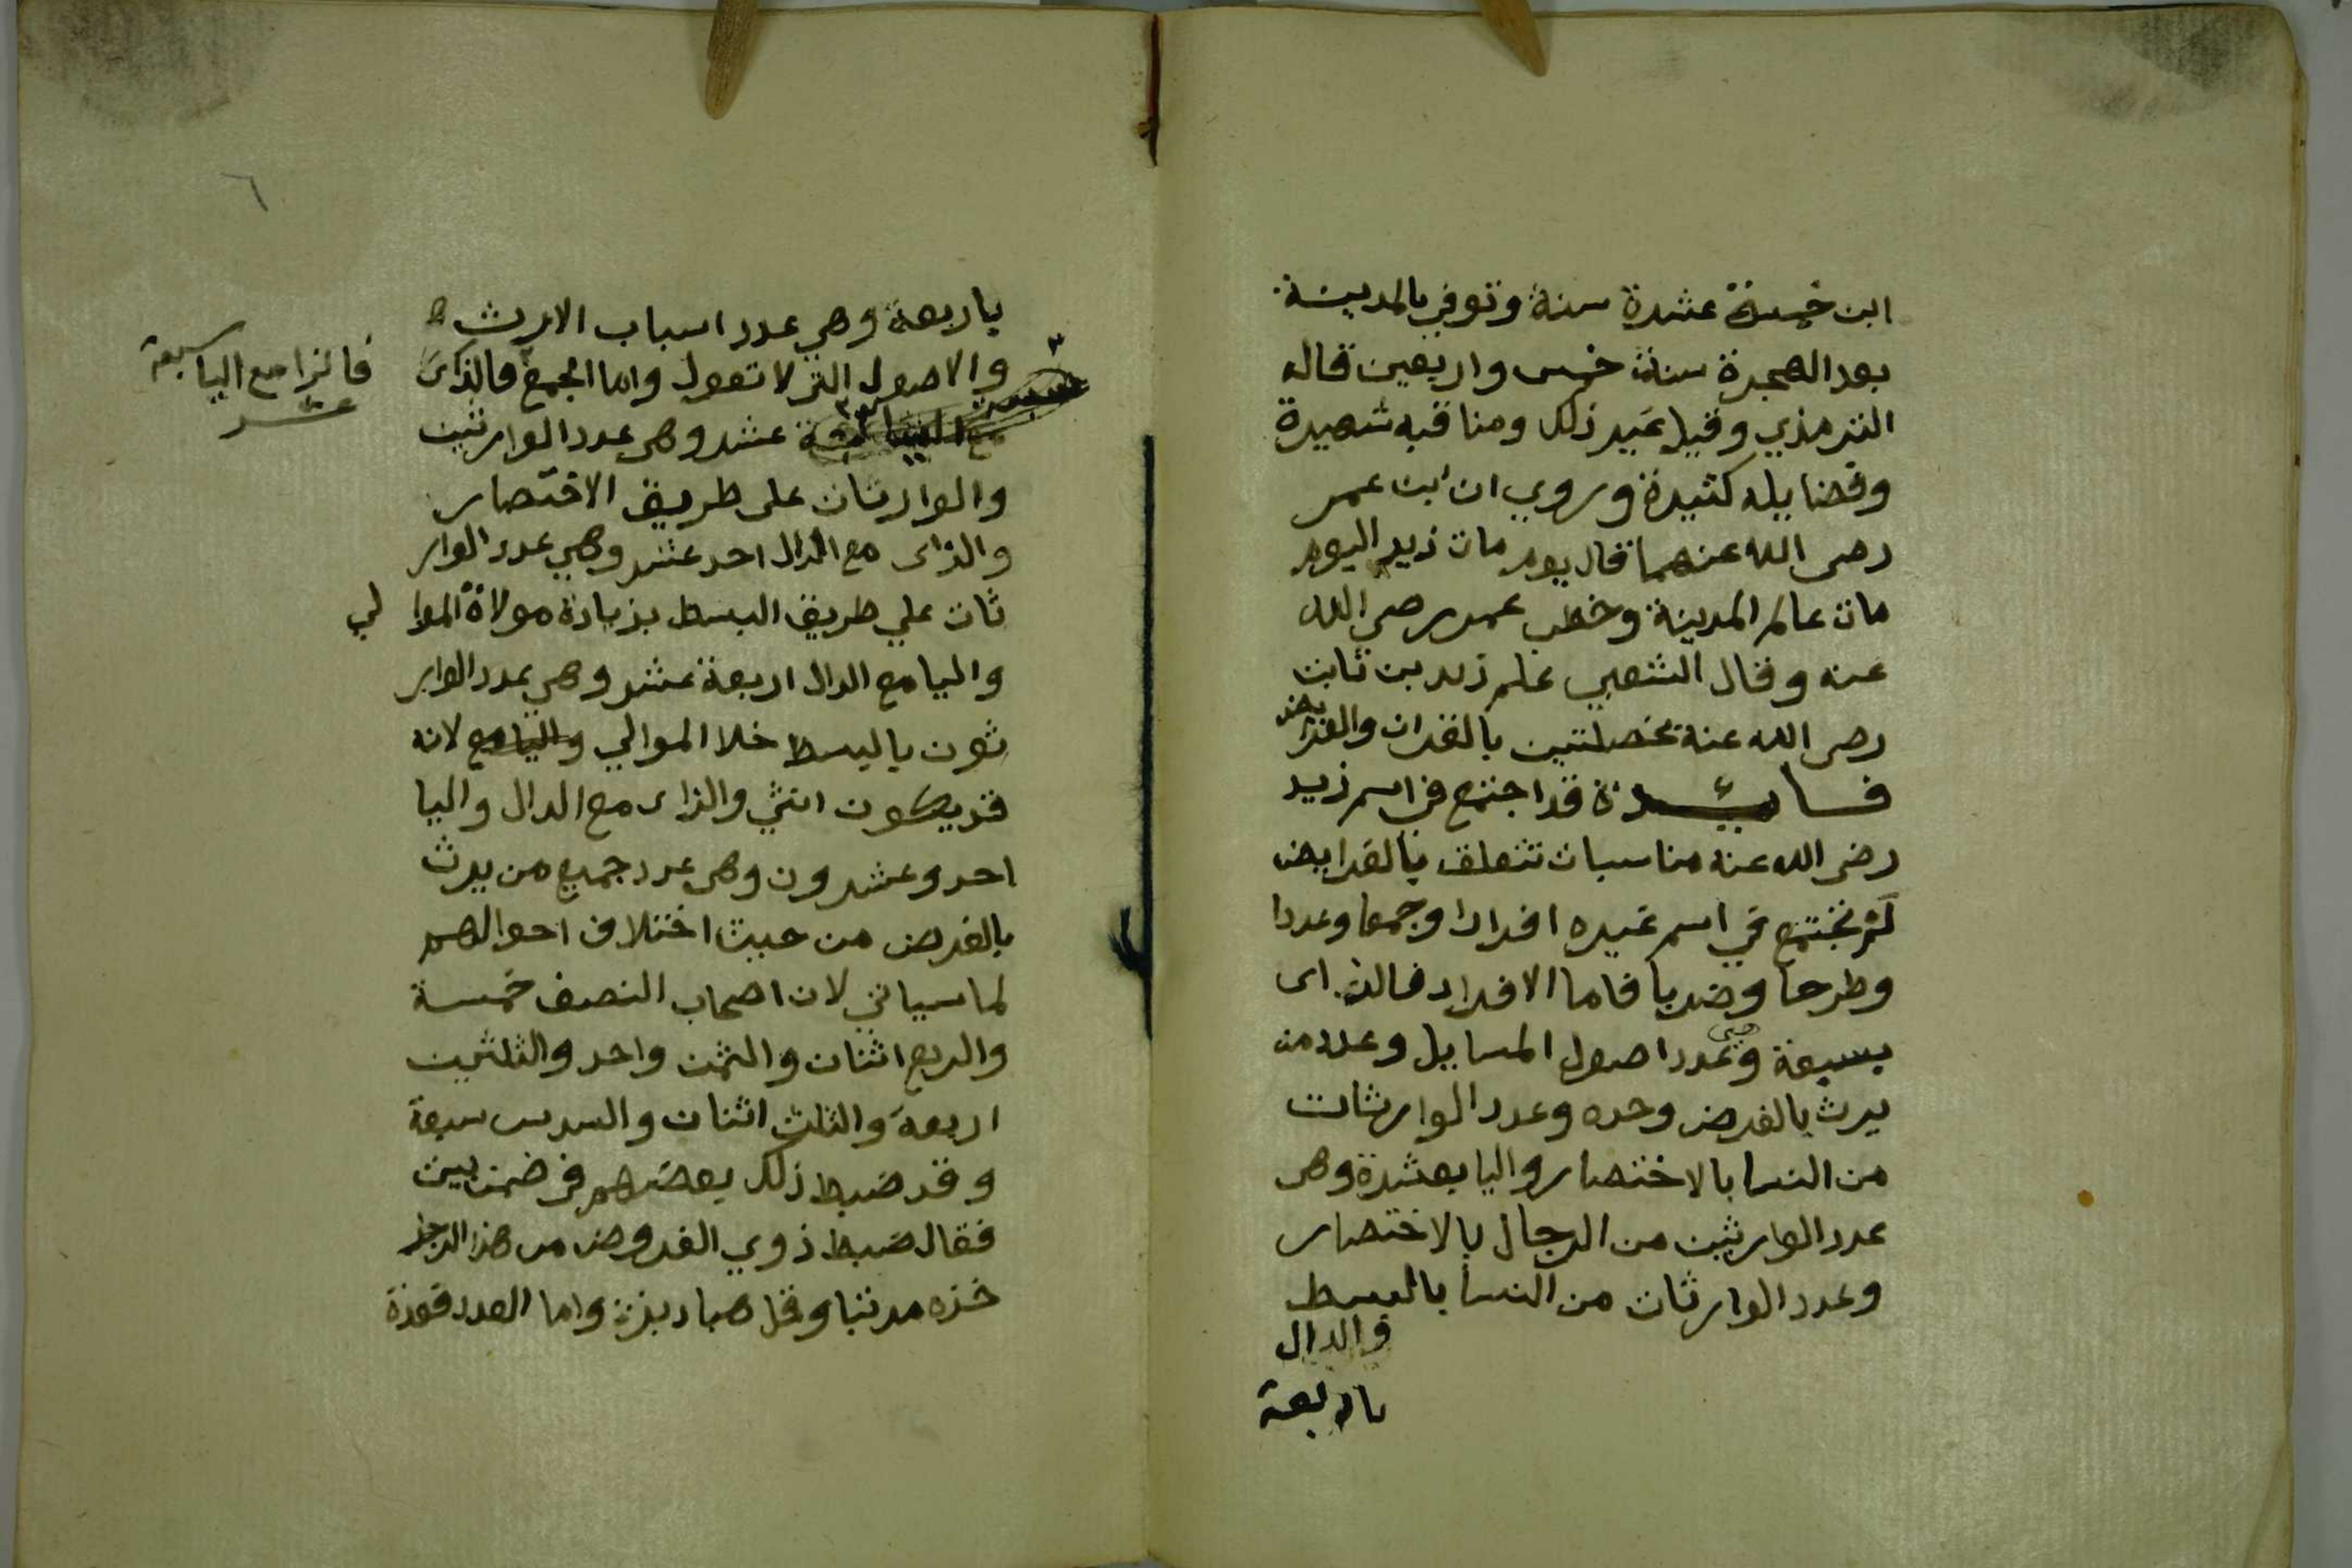 ابن خمسة عشرة سنة وتوفي بالمدينة
بعد الهجرة سنة خمس واربعين قاله
الترمذي وقيل غير ذلك ومناقبه شهيرة
وفضايله كثيرة وروي ان ابن عمر
رضى الله عنهما قال يوم مات زيد اليوم
مات عالم المدينة وخطب عمر رضي الله
عنه وقال الشعبي علم زيد بن ثابت
رضى الله عنه بخصلتين بالقران والفرايض
فايدة قد اجتمع في اسم زيد
رضى الله عنه مناسبات تتعلق بالفرايض
لم تجتمع في اسم غيره افرادا وجمعا وعددا
وطرحا وضربا فاما الافراد فالزاى
بسبعة وهي عدد اصول المسايل وعدد من
يرث بالفرض وحده وعدد الوارثات
من النسا بالاختصار واليا بعشرة وهى
عدد الوارثين من الرجال بالاختصار
وعدد الوارثات من النسا بالبسط
والدال
باربعة
٦
باربعة وهي عدد اسباب الارث
والاصول التي لا تعول واما الجمع فالزاى
فالزا مع اليا سبعة
عشر
عشر وهى عدد الوارثين
والوارثات على طريق الاختصار
والزاى مع الدال احد عشر وهي عدد الوار
ثات علي طريق البسط بزيادة مولاة الموالي
واليا مع الدال اربعة عشر وهي عدد الوار
ثون بالبسط خلا الموالي واليا مع لانه
قد يكون انثي والزاى مع الدال واليا
احد وعشرون وهى عدد جميع من يرث
بالفرض من حيث اختلاف احوالهم
لما سياتي لان اصحاب النصف خمسة
والربع اثنان والثمن واحد والثلثين
اربعة والثلث اثنان والسدس سبعة
وقد ضبط ذلك بعضهم في ضمن بيت
فقال ضبط ذوي الفروض من هذا الرجز
خذه مرتبا وقل هبادبز واما العدد فعدة